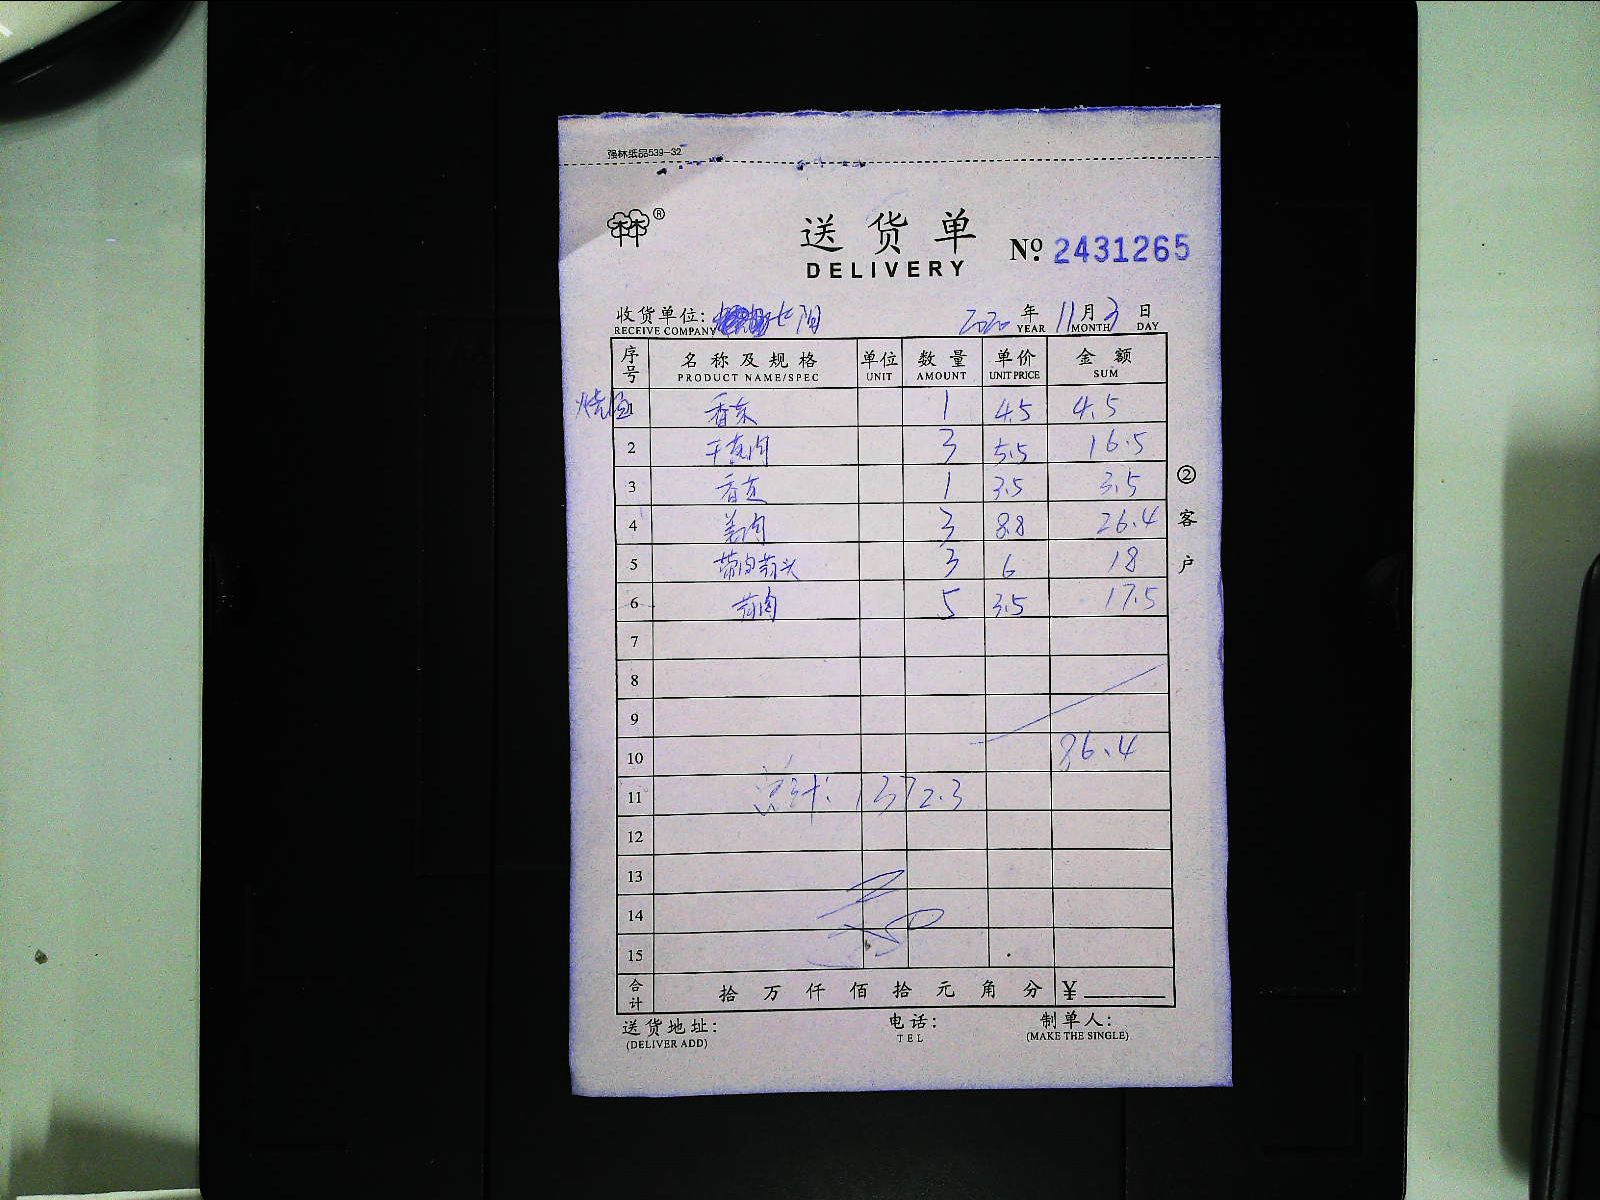 强林纸品539-32
林林®
送货单
DELIVERY
No. 2431265
收货单位: 七阳
RECEIVE COMPANY
2020 年 11 月 3 日
YEAR MONTH DAY
序号 名称及规格 单位 数量 单价 金额
PRODUCT NAME/SPEC UNIT AMOUNT UNIT PRICE SUM
1 1 4.5 4.5
2 3 5.5 16.5
3 1 3.5 3.5
4 3 8.8 26.4
5 3 6 18
6 5 3.5 17.5
7
8
9
10 86.4
11 总计: 1372.3
12
13
14
15
合计 拾 万 仟 佰 拾 元 角 分 ¥
②客户
送货地址: 电话: 制单人:
(DELIVER ADD) TEL (MAKE THE SINGLE)